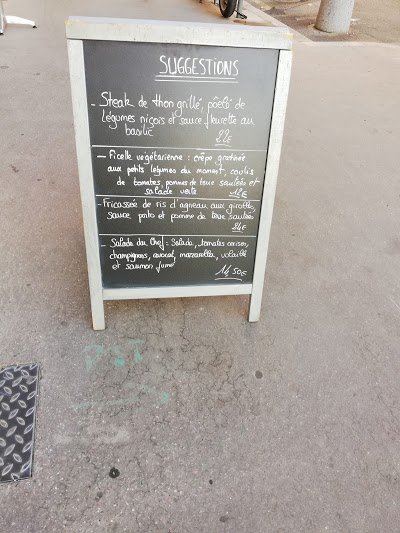 SUGGESTIONS
- Steak de thon grillé, poêlé de
légumes niçois et sauce fleurette au
basilic
22€
- Ficelle végétarienne : crêpe gratinée
aux petits légumes du moment, coulis
de tomates, pommes de terre sautées et
salade verte
- Fricassée de ris d'agneau aux girolles,
sauce porto et pomme de terre sautées
24€
- Salade du Chef : Salade, tomates cerises,
champignons, avocat, mozzarella, volaille
et saumon fumé
14,50€